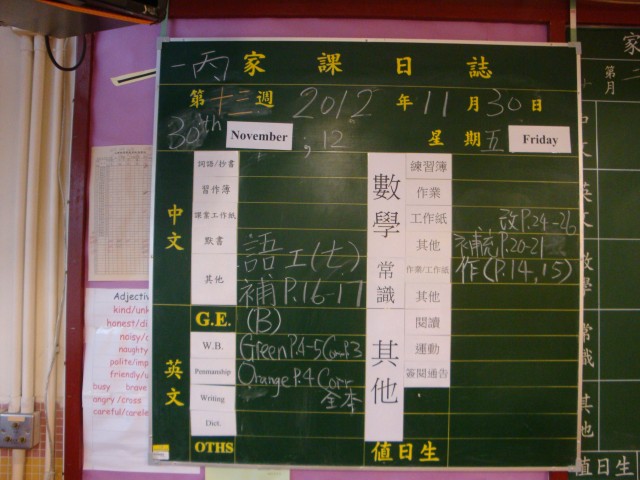 一丙 家 課 日 誌
第十三週 2012 年 11 月 30 日
30th November , 12 星 期 五 Friday
中文
詞語/抄書
習作簿
課堂工作紙
默書
其他
語工(七)
補P.16-17
G.E. (B)
英文
W.B. Green P.4-5 Corr P.3
Penmanship Orange P.4 Corr
全本
Writing
Dict.
OTHS
數學
練習簿
作業
工作紙 改P.24-26
其他 補充P.20-21
常識
作業/工作紙 作(P.14,15)
其他
其他
閱讀
運動
簽閱通告
值日生
Adjectiv
kind/unk
honest/di
noisy/
naughty
polite/imp
friendly/u
busy brave
angry /cross
careful/carele
家
月
英文
數學
常識
其他
值日生